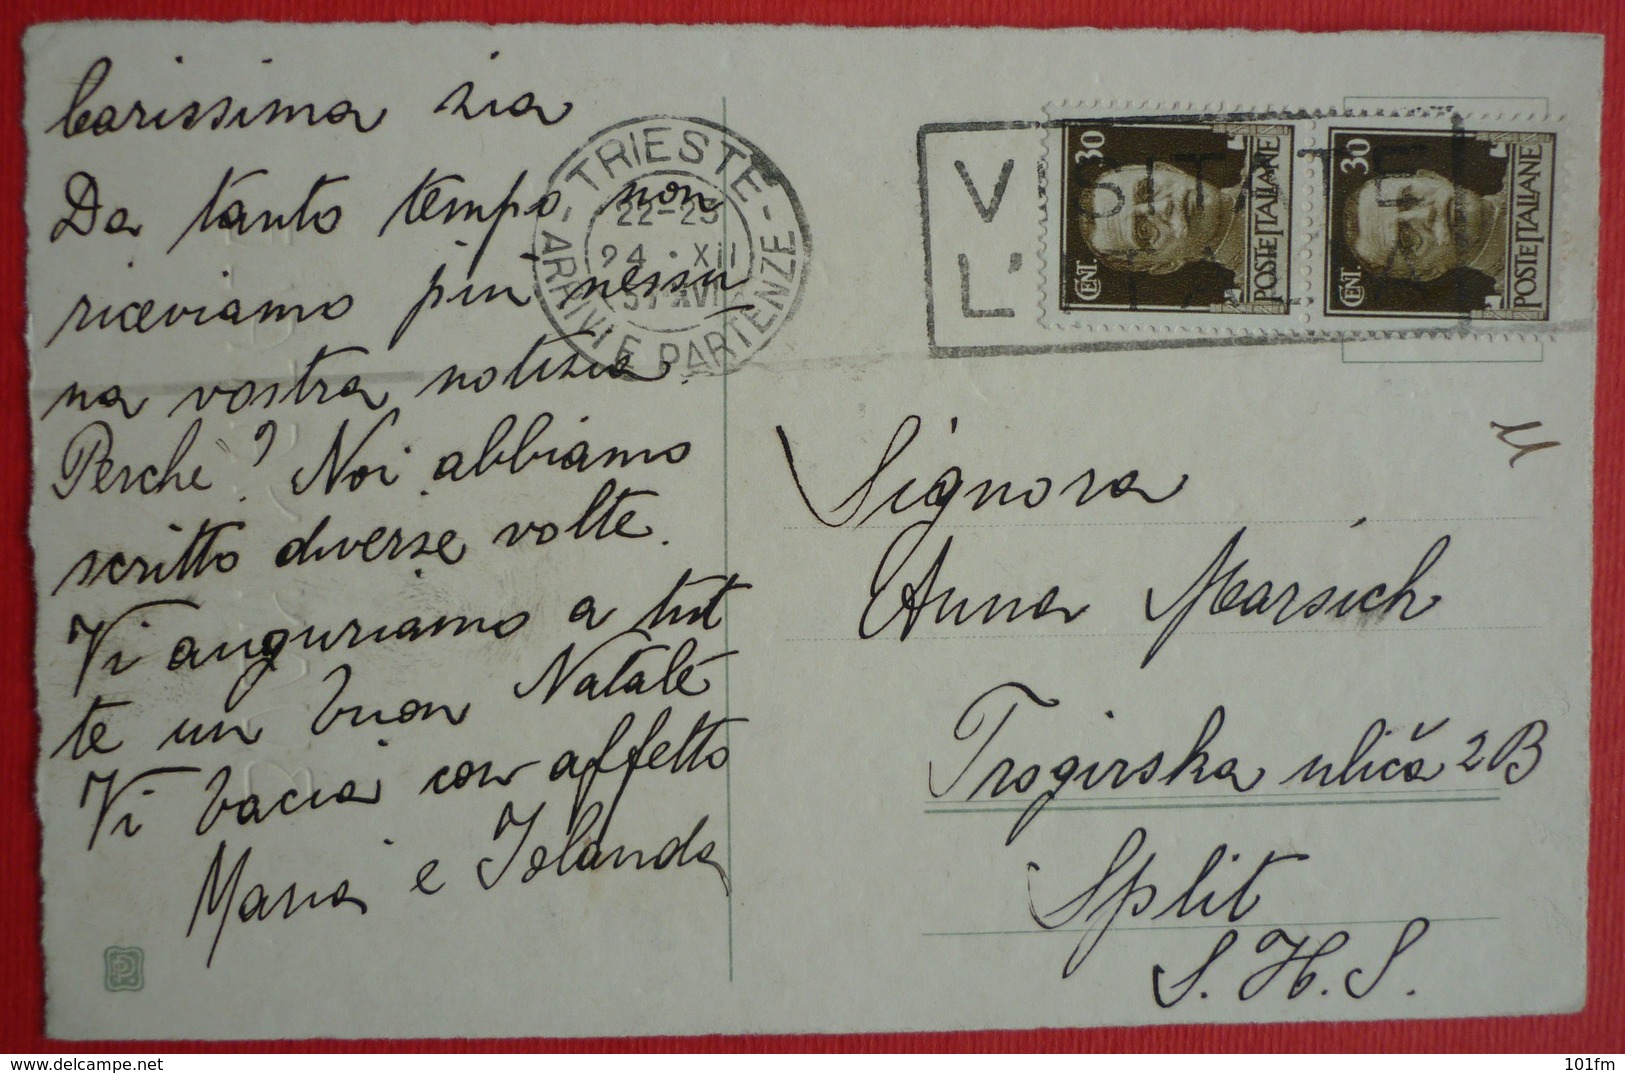 Carissima zia
Da tanto tempo non
riceviamo più nessu
na vostra notizia.
Perchè? Noi abbiamo
scritto diverse volte.
Vi auguriamo a tut
te un buon Natale
Vi bacia con affetto
Maria e Iolanda
TRIESTE
22-23
24 · XII
37 XVI
ARRIVI E PARTENZE
VISITATE
L'ITALIA
CENT. 30
POSTE ITALIANE
CENT. 30
POSTE ITALIANE
11
Signora
Anna Marsich
Trogirska ulića 2B
Split
S. H. S.
101fm